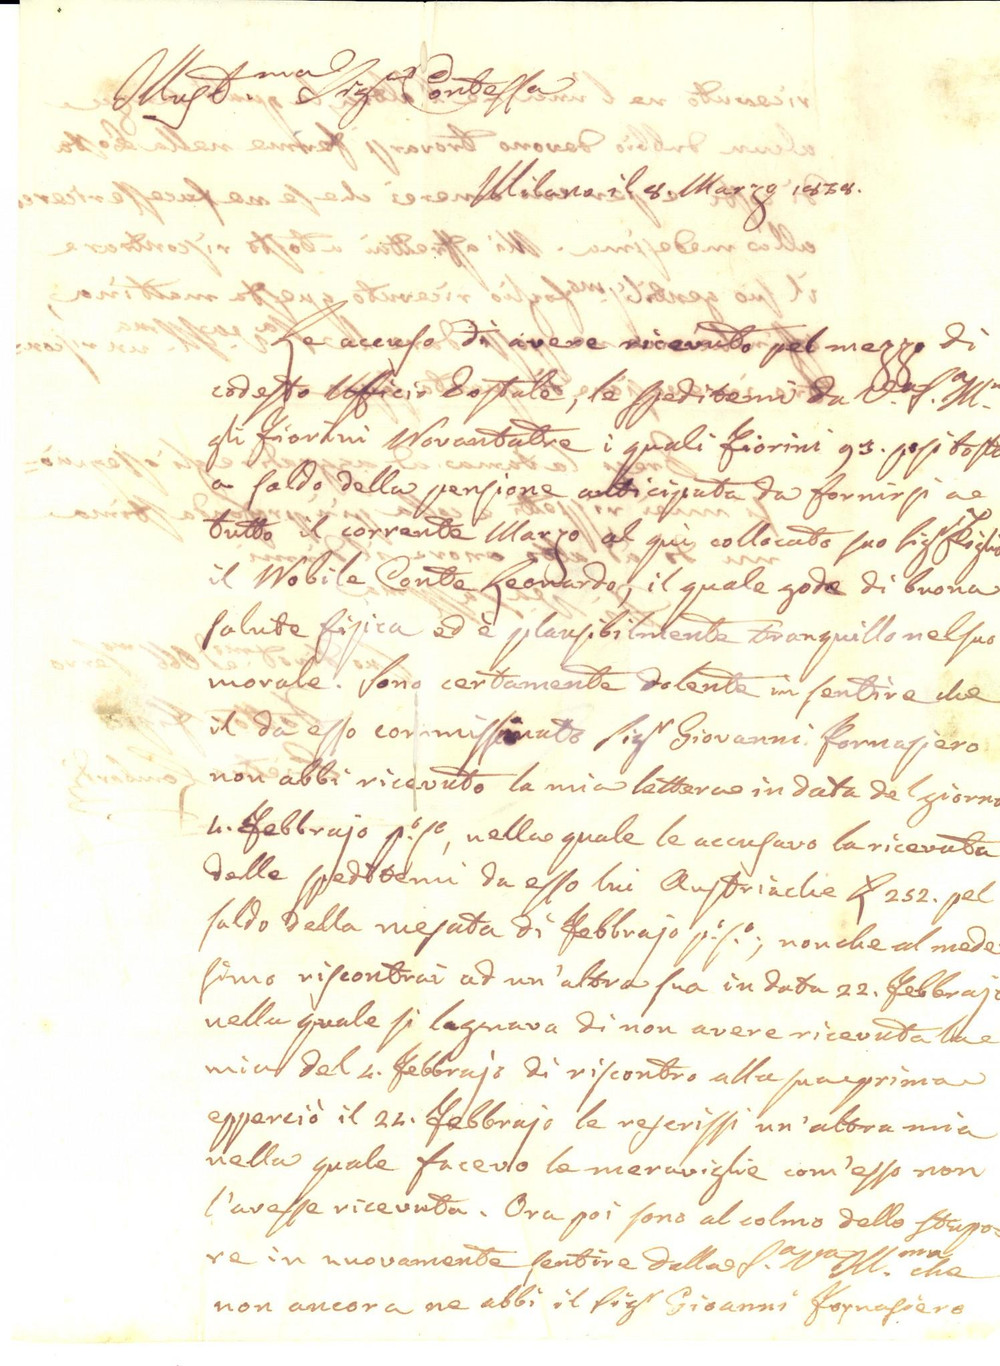 Illust.ma Sig.ra Contessa
Milano il 8. Marzo 1838.
Le accuso di avere ricevuto pel mezzo di
codesto Ufficio Postale, le speditemi da V.a S. Ill.
gli Fiorini Novantatre i quali Fiorini 93.
a saldo della pensione anticipata da fornirsi a
tutto il corrente Marzo al qui collocato suo Sig.r Figlio
il Nobile Conte Leonardo, il quale gode di buona
salute fisica ed è plausibilmente tranquillo nel suo
morale. Sono certamente dolente in sentire che
il da esso commissionato Sig.r Giovanni Fornasiero
non abbi ricevuto la mia lettera in data del giorno
4. Febbrajo p.o p.o, nella quale le accusavo la ricevuta
delle speditemi da esso lui Austriache £ 252. pel
saldo della mesata di Febbrajo p.o p.o, nonche al mede
simo riscontrai ad un'altra sua in data 22. Febbrajo
nella quale si lagnava di non avere ricevuta la
mia del 4. Febbrajo di riscontro alla sua prima
epperciò il 24. Febbrajo le rescrissi un'altra mia
nella quale facevo le meraviglie com'esso non
l'avesse ricevuta. Ora poi sono al colmo dello stupo=
re in nuovamente sentire dalla S.a V.a Ill.ma che
non ancora ne abbi il Sig.r Gioanni Fornasiero